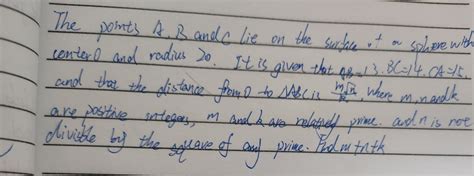 The points A, B and C lie on the surface of a sphere with
center O and radius 20. It is given that AB=13. BC=14. CA=15.
and that the distance from O to △ABC is m√n/k, where m, n and k
are positive integers, m and k are relatively prime. and n is not
divisible by the square of any prime. Find m+n+k